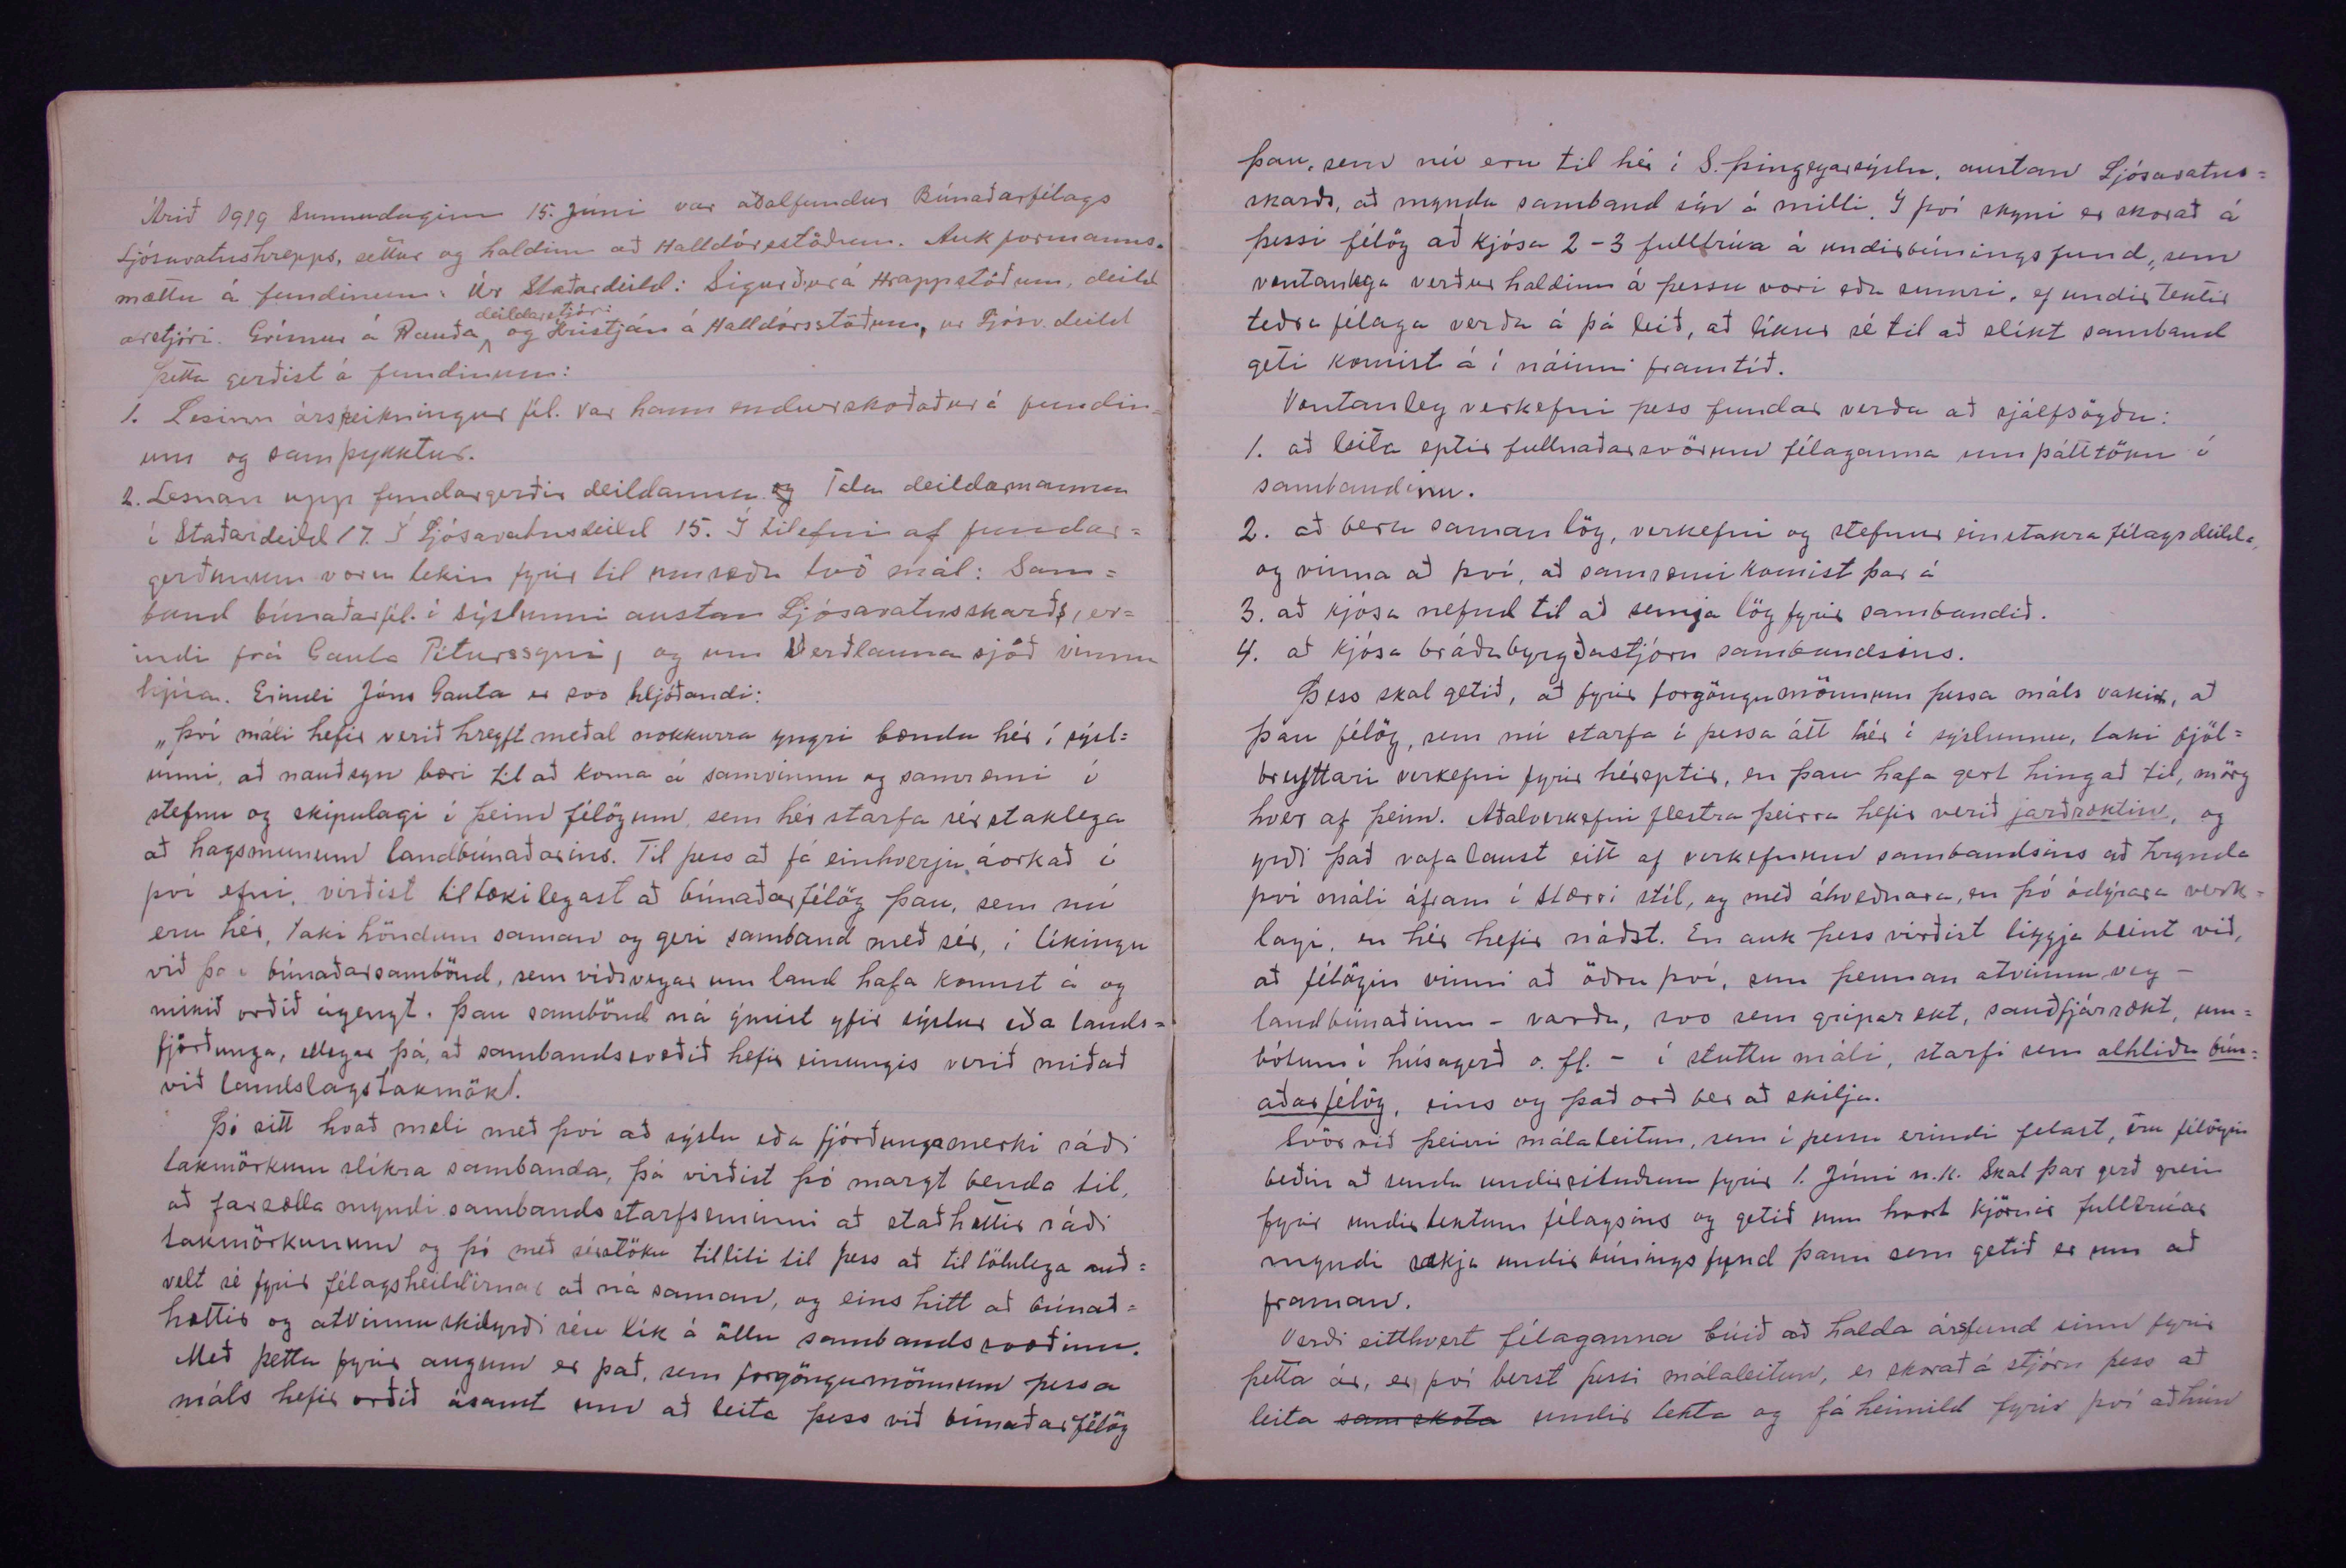 Árið 1919 Sunnudaginn 15. Júní var aðalfundur Búnaðarfélags
Ljósavatnshrepps, settur og haldinn að Halldórsstöðum. Auk formanns.
mættu á fundinum: Úr Staðardeild: Sigurður á Hrappstöðum, deild
arstjóri. Grímur á Rauða deildarstjóri og Kristján á Halldórsstöðum, úr Ljósv. deild
Þetta gerðist á fundinum:
1. Lesinn ársreikningur fél. Var hann endurskoðaður á fundin-
um og samþykktur.
2. Lesnar upp fundargerðir deildanna og Tala deildarmanna
í Staðardeild 17. Í Ljósavatnsdeild 15. Í tilefni af fundar=
gerðunum voru tekin fyrir til umræðu tvö mál: Sam=
band búnaðarfél. í sýslunni austan Ljósavatnsskarðs, er=
indi frá Gauta Péturssyni, og um Verðlaunasjóð vinnu
hjúa. Erindi Jóns Gauta er svo hljóðandi:
„Því máli hefir verið hreyft meðal nokkurra yngri bænda hér í sýsl=
unni, að nauðsyn bæri til að koma á samvinnu og samræmi í
stefnu og skipulagi í þeim félögum, sem hér starfa sérstaklega
að hagsmunum landbúnaðarins. Til þess að fá einhverju áorkað í
því efni, virðist tiltækilegast að búnaðarfélög þau, sem nú
eru hér, taki höndum saman og geri samband með sér, í líkingu
við þau búnaðarsambönd, sem víðsvegar um land hafa komist á og
mikið orðið ágengt. Þau sambönd ná ýmist yfir sýslur eða lands=
fjórðunga, ellegar þá, að sambandssvæðið hefir einungis verið miðað
við landslagstakmörk.
Þó sitt hvað mæli með því að sýslu eða fjórðungamerki ráði
takmörkum slíkra sambanda, þá virðist þó margt benda til,
að farsælla myndi sambandsstarfseminni að staðhættir ráði
takmörkunum og þó með sérstöku tilliti til þess að tiltölulega auð=
velt sé fyrir félagsheildirnar að ná saman, og eins hitt að búnað=
hættir og atvinnuskilyrði séu lík á öllu sambandssvæðinu.
Með þetta fyrir augum er það, sem forgöngumönnum þessa
máls hefir orðið ásamt um að leita þess við búnaðarfélög
þau, sem nú eru til hér í S. Þingeyarsýslu, austan Ljósavatns=
skarðs, að mynda samband sín á milli. Í því skyni er skorað á
þessi félög að kjósa 2-3 fulltrúa á undirbúningsfund, sem
væntanlega verður haldinn á þessu vori eða sumri, ef undirtektir
téðra félaga verða á þá leið, að líkur sé til að slíkt samband
geti komist á í náinni framtíð.
Væntanleg verkefni þess fundar verða að sjálfsögðu:
1. að leita eptir fullnaðarsvörum félaganna um þátttöku í
sambandinu.
2. að bera saman lög, verkefni og stefnur einstakra félagsdeilda,
og vinna að því, að samræmi komist þar á
3. að kjósa nefnd til að semja lög fyrir sambandið.
4. að kjósa bráðabyrgðastjórn sambandsins.
Þess skal getið, að fyrir forgöngumönnum þessa máls vakir, að
þau félög, sem nú starfa í þessa átt hér í sýslunni, taki fjöl=
breyttari verkefni fyrir héreptir, en þau hafa gert hingað til, mörg
hver af þeim. Aðalverkefni flestra þeirra hefir verið jarðræktin, og
yrði það vafalaust eitt af verkefnum sambandsins að hrynda
því máli áfram í stærri stíl, og með áhveðnara, en þó ódýrara verk-
lagi, en hér hefir náðst. En auk þess virðist liggja beint við,
að félögin vinni að öðru því, sem þennan atvinnuveg -
landbúnaðinn - varða, svo sem griparækt, sauðfjárrækt, um=
bótum í húsagerð o. fl. - í stuttu máli, starfi sem alhliða bún=
aðarfélög, eins og það orð ber að skilja.
Svör við þeirri málaleitun, sem í þessu erindi felast, eru félögin
beðin að senda undirrituðum fyrir 1. Júní n.k. Skal þar gerð grein
fyrir undirtektum félagsins og getið um hvort kjörnir fulltrúar
myndi sækja undirbúningsfund þann sem getið er um að
framan.
Verði eitthvert félaganna búið að halda ársfund sinn fyrir
þetta ár, er því berst þessi málaleitun, er skorað á stjórn þess að
leita samskota undir tekta og fá heimild fyrir því að hún